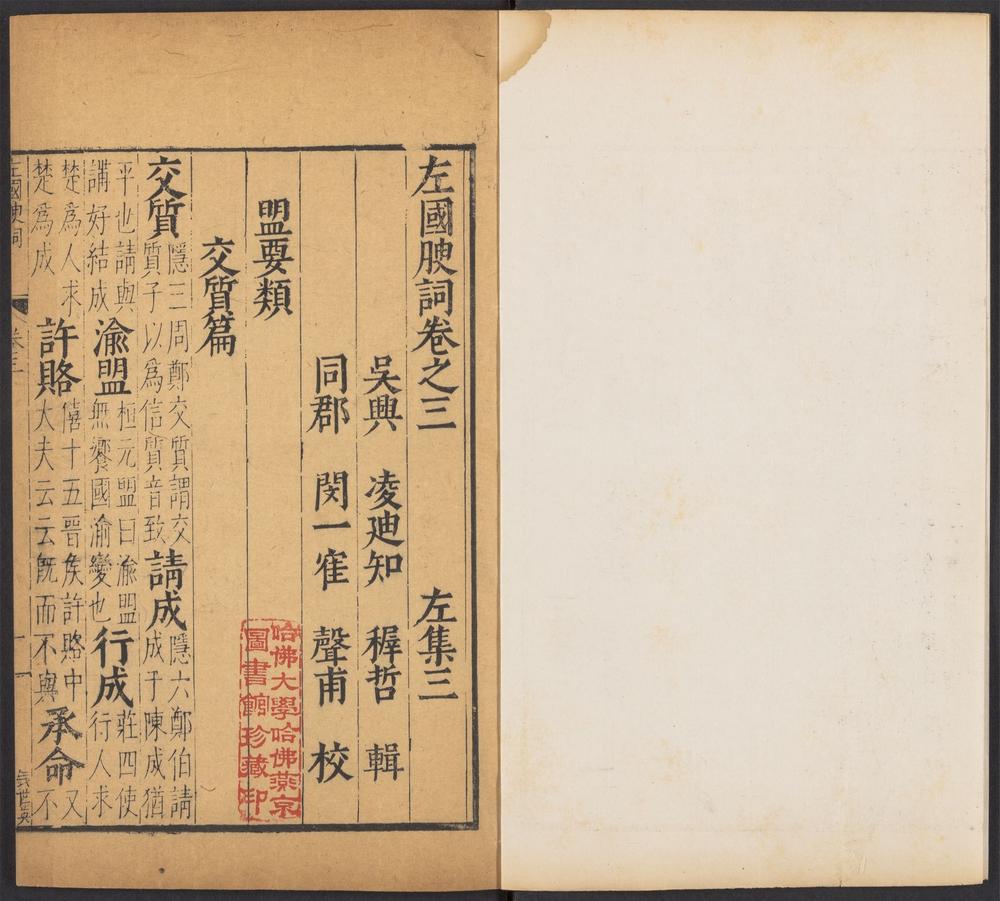 左國腴詞卷之三 左集三
吳興 凌迪知 穉哲 輯
同郡 閔一寉 聲甫 校
盟要類
交質篇
交質 隱三周鄭交質謂交質子以爲信質音致 請成 隱六鄭伯請成于陳成猶
平也請與講好結成 渝盟 桓元盟曰渝盟無饗國渝變也 行成 莊四使行人求
楚爲人求楚爲成 許賂 僖十五晉侯許賂中大夫云云旣而不與 承命 又不
左國腴詞 卷三 一
哈佛大學哈佛燕京
圖書館珍藏印